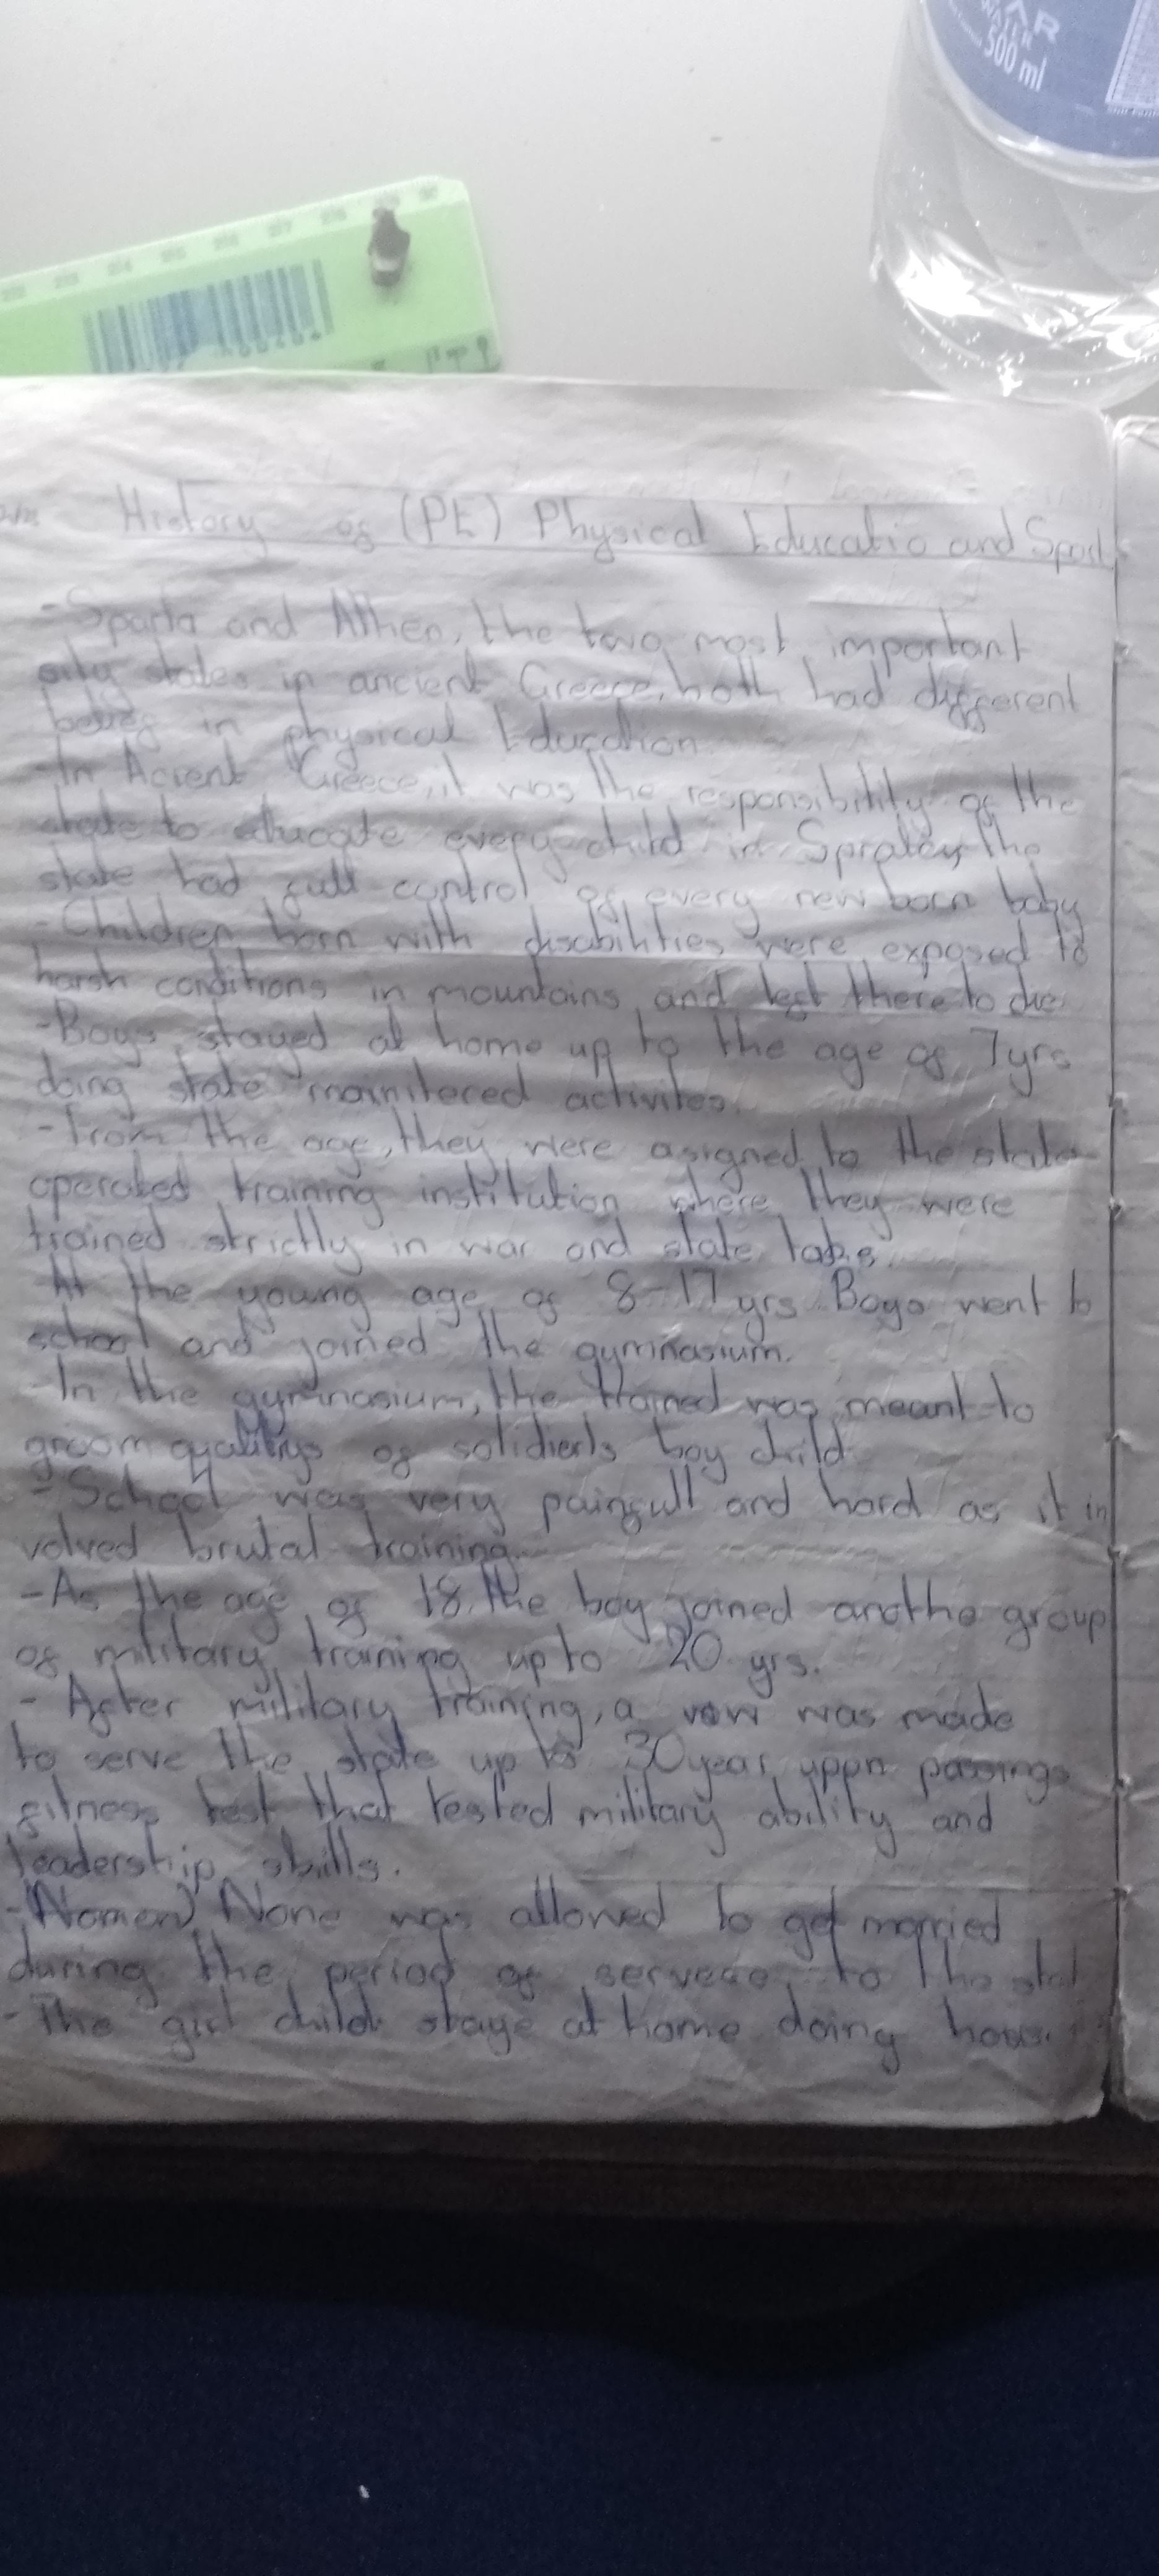 AR
WATER
500 ml
History of (PE) Physical Educatio and Sport
-Sparta and Athen, the two most important
city states in ancient Greece, both had different
belief in physical Education
-In Acient Greece, it was the responsibility of the
state to educate every child in the
state had full control of every new born baby
-Children born with disabilities were exposed to
harsh conditions in mountains and left there to die
-Boys stayed at home up to the age of 7yrs
doing state activites.
-From the age, they were asigned to the state
operated training institution where they were
trained strictly in war and state
At the young age of 8-17 yrs Boys went to
school and joined the gymnasium.
-In the gymnasium, the trained was meant to
groom of boy child
-School was very painfull and hard as it in
volved brutal training.
-As the age of 18 the boy joined anothe group
of military training up to 20 yrs.
- After military training, a vow was made
to serve the state up to 30year upon passing
fitness test that tested military ability and
leadership skills.
-(Women) None was allowed to get married
during the period of to the
-The girl child stage at home doing